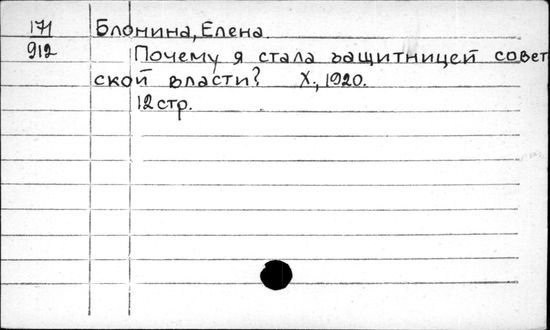 171 Блонина, Елена.
912 Почему я стала защитницей совет
ской власти? Х., 1920.
12 стр.